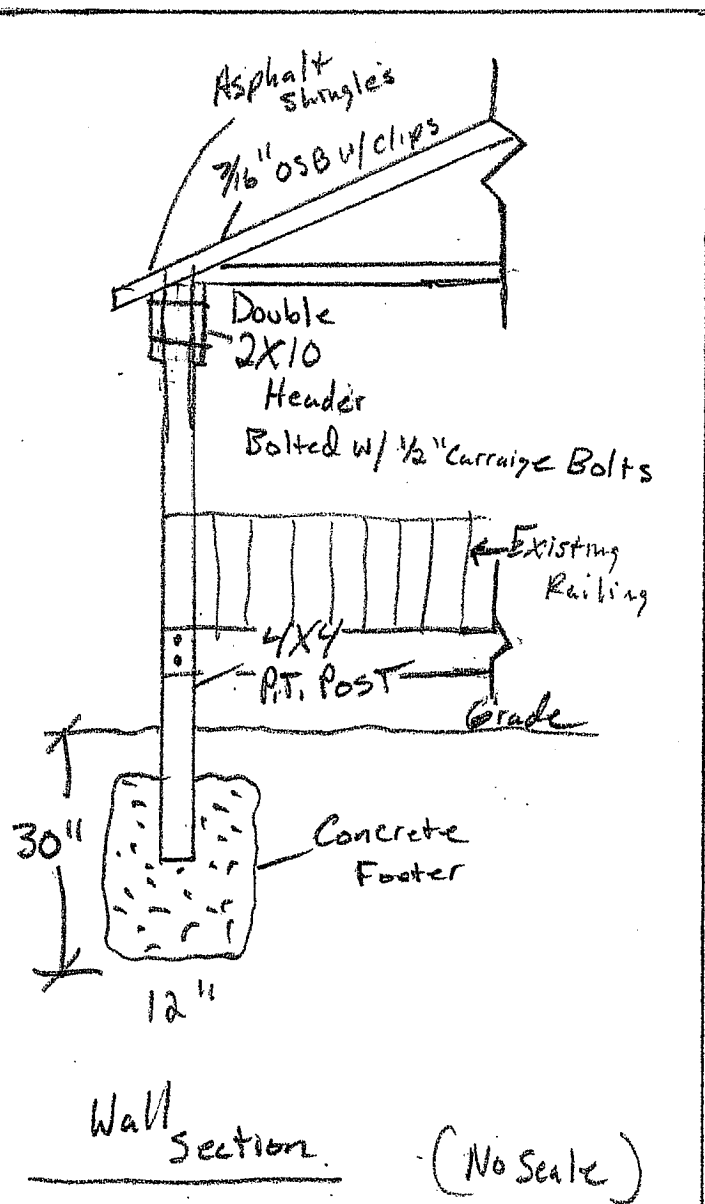 Asphalt
Shingles
7/16" OSB w/ clips
Double
2X10
Header
Bolted w/ 1/2" Carraige Bolts
Existing
Railing
4X4
P.T. POST
Grade
30"
Concrete
Footer
12"
Wall
Section
(No Scale)